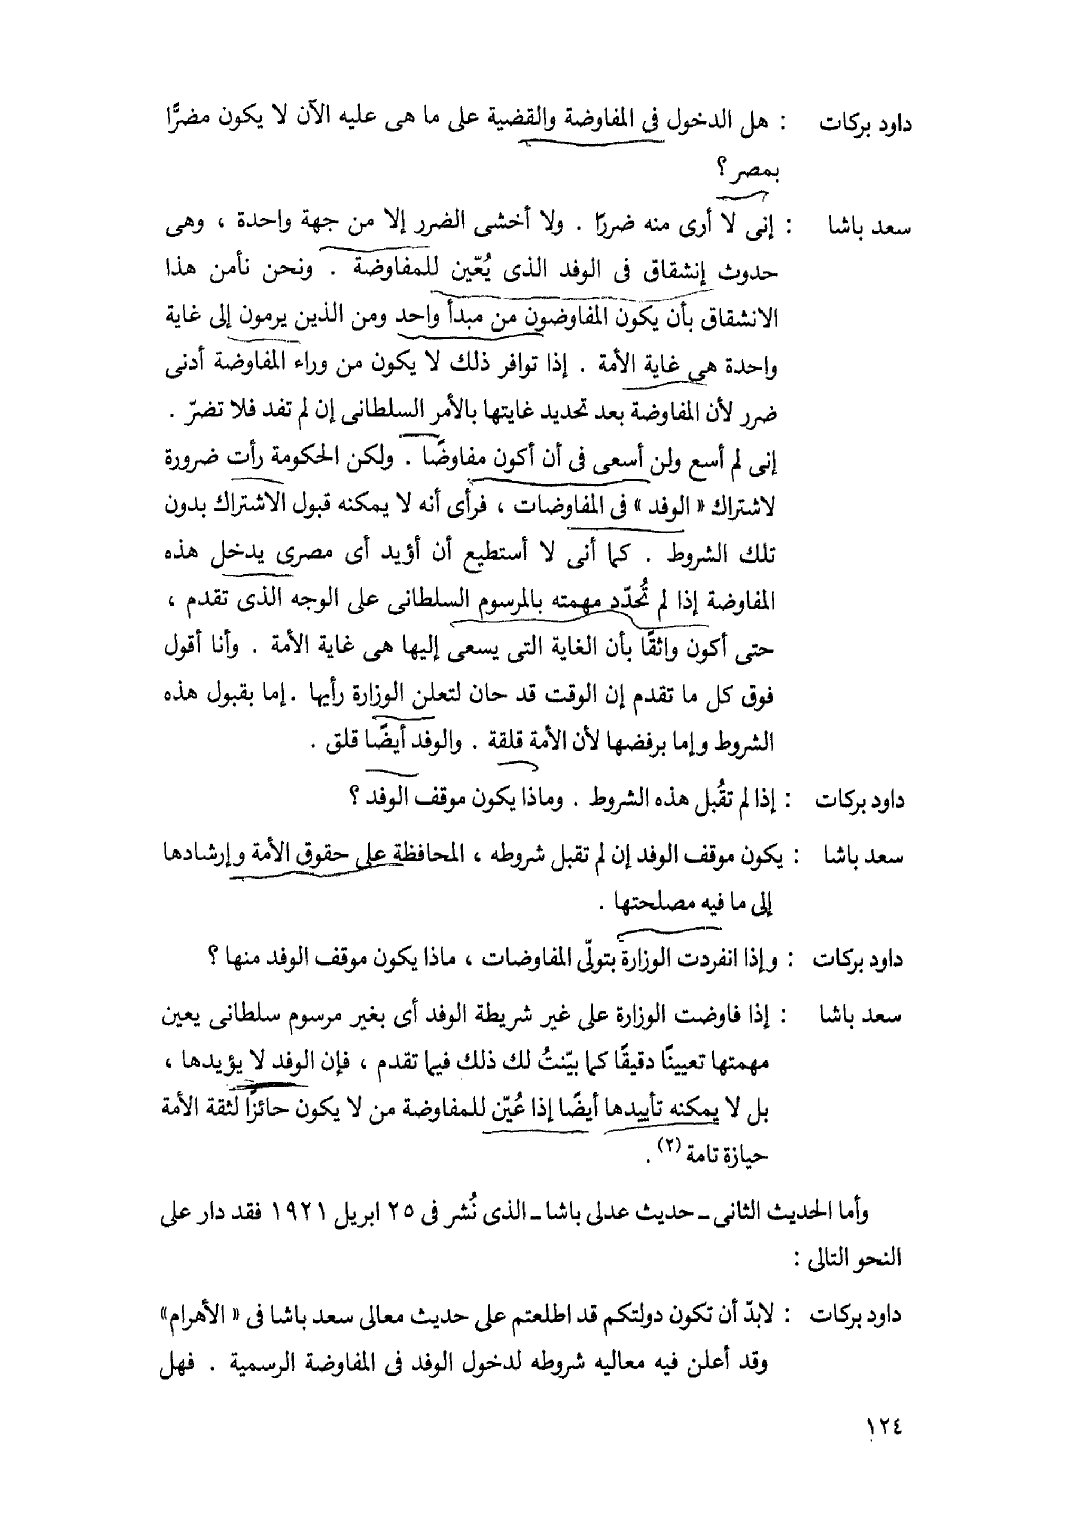 داود بركات : هل الدخول فى المفاوضة والقضية على ما هى عليه الآن لا يكون مضرًّا
بمصر ؟
سعد باشا : إنى لا أرى منه ضررًا . ولا أخشى الضرر إلا من جهة واحدة ، وهى
حدوث إنشقاق فى الوفد الذى يُعّين للمفاوضة . ونحن نأمن هذا
الانشقاق بأن يكون المفاوضون من مبدأ واحد ومن الذين يرمون إلى غاية
واحدة هى غاية الأمة . إذا توافر ذلك لا يكون من وراء المفاوضة أدنى
ضرر لأن المفاوضة بعد تحديد غايتها بالأمر السلطانى إن لم تفد فلا تضرّ .
إنى لم أسع ولن أسعى فى أن أكون مفاوضًا . ولكن الحكومة رأت ضرورة
لاشتراك « الوفد » فى المفاوضات ، فرأى أنه لا يمكنه قبول الاشتراك بدون
تلك الشروط . كما أنى لا أستطيع أن أؤيد أى مصرى يدخل هذه
المفاوضة إذا لم تُحدّد مهمته بالمرسوم السلطانى على الوجه الذى تقدم ،
حتى أكون واثقًا بأن الغاية التى يسعى إليها هى غاية الأمة . وأنا أقول
فوق كل ما تقدم إن الوقت قد حان لتعلن الوزارة رأيها . إما بقبول هذه
الشروط وإما برفضها لأن الأمة قلقة . والوفد أيضًا قلق .
داود بركات : إذا لم تقُبل هذه الشروط . وماذا يكون موقف الوفد ؟
سعد باشا : يكون موقف الوفد إن لم تقبل شروطه ، المحافظة على حقوق الأمة وإرشادها
إلى ما فيه مصلحتها .
داود بركات : وإذا انفردت الوزارة بتولّى المفاوضات ، ماذا يكون موقف الوفد منها ؟
سعد باشا : إذا فاوضت الوزارة على غير شريطة الوفد أى بغير مرسوم سلطانى يعين
مهمتها تعيينًا دقيقًا كما بيّنتُ لك ذلك فيما تقدم ، فإن الوفد لا يؤيدها ،
بل لا يمكنه تأييدها أيضًا إذا عُيّن للمفاوضة من لا يكون حائزًا لثقة الأمة
حيازة تامة (٢) .
وأما الحديث الثانى ـ حديث عدلى باشا ـ الذى نُشر فى ٢٥ ابريل ١٩٢١ فقد دار على
النحو التالى :
داود بركات : لابدّ أن تكون دولتكم قد اطلعتم على حديث معالى سعد باشا فى « الأهرام »
وقد أعلن فيه معاليه شروطه لدخول الوفد فى المفاوضة الرسمية . فهل
١٢٤